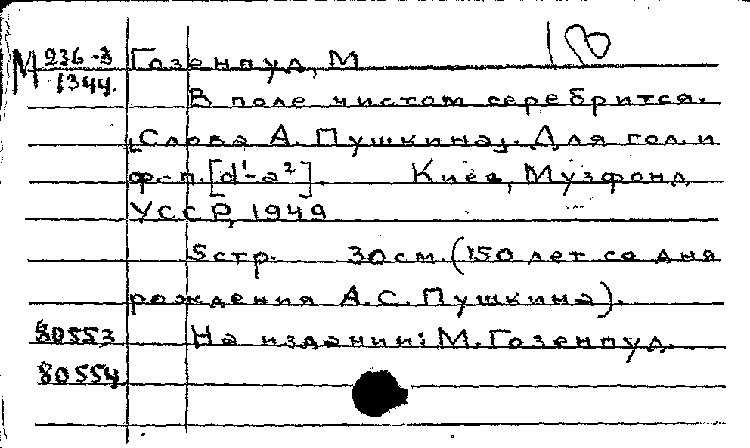 18
М 936-3 Гозенпуд, М
1344.
В поле чистом серебрится.
[Слова А. Пушкина]. Для гол. и
ф.-п. [d¹-a²]. Киев, Музфонд
УССР, 1949
5 стр. 30 см. (150 лет со дня
рождения А.С. Пушкина).
80553 На издании: М. Гозенпуд.
80554